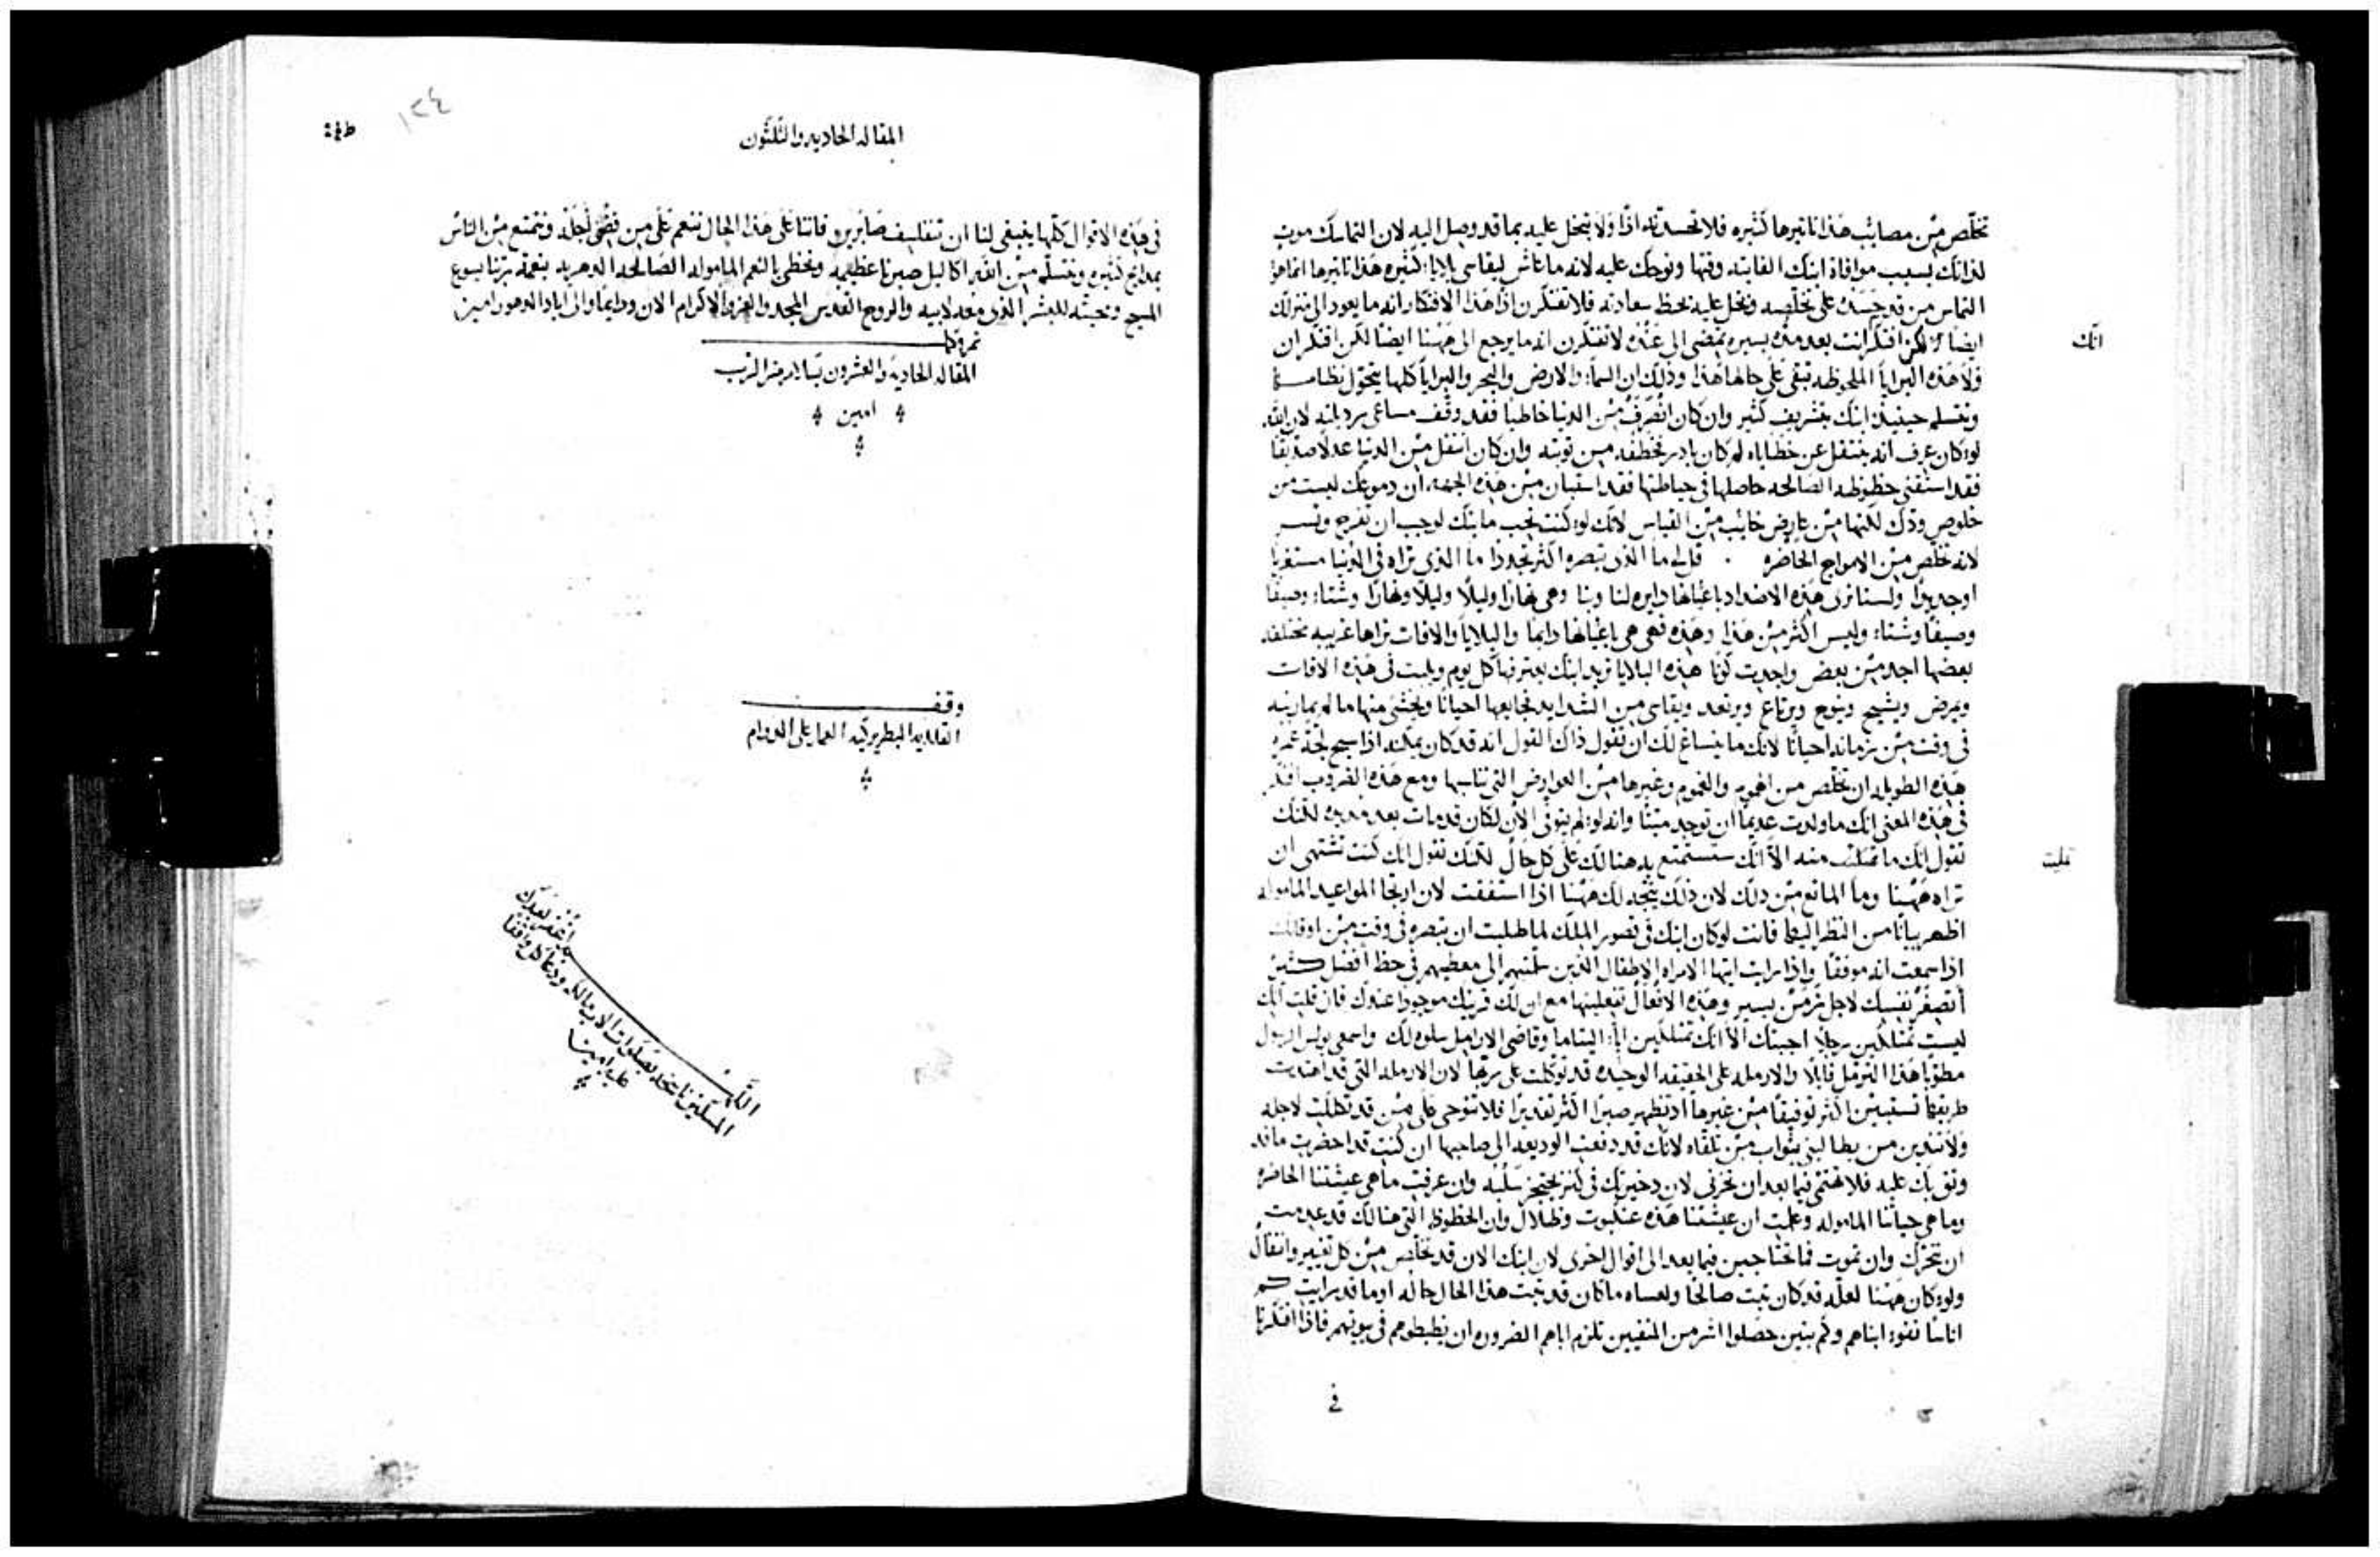 تخلّص من مصايب هذا تاثيرها كثيره فلا تحسدنه اذًا ولا تبخل عليه بما قد وصل اليه لان التماسك موت
لذاتك بسبب موافاة ابنك الفايته وقتها ونوحك عليه لانه ما عاش ليقاسي بلايا كثيره هذا تاثيرها انما هو
التماس من قد حسده على تخلّصه وبخل عليه بحظ سعادته فلا تفتكرن اذًا هذا الافتكار انه ما يعود الى منزلك
ايضًا لكن افتكر انت بعد مدّه يسيره تمضي الى عنده لا تفتكرن انه ما يرجع الى ههنا ايضًا لكن افتكر ان
انّك
ولا هذه البرايا الملحوظه تبقى على حالها هذا وذلك ان السما والارض والبحر والبرايا كلها يتحوّل نظامها
وتتسلم حينيذ ابنك بتشريف كثير وان كان انصرف من الدنيا خاطيًا فقد وقف مساعي رديلته لان الله
لو كان عرف انه ينتقل عن خطاياه لم كان بادر بخطفه من توبته وان كان انتقل من الدنيا عدلاً صدّيقًا
فقد استقنى حظوظه الصالحه حاصلها في حياطتها فقد استبان من هذه الجهه ان دموعك ليست من
خلوص ودّك لكنها من عارض خايب من القياس لانّك لو كنت تحب مابنك لوجب ان تفرح وتسر
لانه تخلّص من الامواج الحاضره . قل لي ما الذي تبصره اكثر تجددا ما الذي تراه في الدنيا مستغربًا
او جديدًا ولسنا نرى هذه الاضداد باعيانها دايره لنا وبنا وهي نهارًا وليلًا وليلًا ونهارًا وشتاءً وصيفًا
وصيفًا وشتاءً وليس اكثر من هذا وهذه فهي هي باعيانها دايمًا والبلايا والافات تراها غريبه مختلفه
بعضها اجد من بعض واحدث كونًا هذه البلايا تريد ابنك يعترفها كل يوم ويلبث في هذه الافات
ويمرض ويشيح وينوح ويرتاع ويرتعد ويقاسي من الشدايد فجايعها احيانًا ويخشى منها ما لم يمارسه
في وقت من زمانه احيانًا لانّك ما ينساغ لك ان تقول ذاك القول انه قد كان يمكنه اذا سبح لجة عمره
هذه الطويله ان تخلّص من الهموم والغموم وغيرها من العوارض التي تنابها ومع هذه الضروب افتكر
في هذه المعنى انّك ما ولدت عديمًا ان توجد ميتًا وانه لو لم يتوفى الان لكان قد مات بعد مديده لكنّك
تقول انّك ما تملّيت منه الّا انّك ستستمتع به هنالك على كل حال لكنّك تقول انّك كنت تشتهي ان
تمليت
تراه ههنا وما المانع من ذلك لان ذلك يتّجه لك ههنا اذا استفقت لان ارتجا المواعيد المامولة
اظهر بيانًا من النظر اليها فانت لو كان ابنك في قصور الملك لما طلبت ان تبصره في وقت من اوقاتك
اذا سمعت انه موفقًا واذا رايت ايتها الامراه الاطفال الذين سلمتهم الى معطيهم في حظ افضل كثير
اتصغر نفسك لاجل زمن يسير وهذه الافعال تفعلينها مع ان لك قرينك موجودا عندك فان قلت انّك
ليست تمتلكين رجلا اجبتك الّا انّك تمتلكين ابا اليتاما وقاضي الارامل سلوه لك واسمعي بولس الرسول
مطوّبا هذا الترمّل قايلًا والارمله على الحقيقه الوحيده قد توكلت على ربّها لان الارمله التي قد اهتديت
طريقها تستبين اكثر توفيقًا من غيرها اذ تظهر صبرًا اكثر تقديرًا فلا تنوحي على من قد تكللت لاجله
ولا تندبن من يطالبني بثواب من تلقاه لانّك قد دفعت الوديعه الى صاحبها ان كنت قد احضرت ما قد
وثق بك عليه فلا تهتمي فيما بعد ان تحزني لان ذخيرتك في كنز يحتجز سلبه وان عرفت ما هي عيشتنا الحاضره
وما هي حياتنا الماموله وعلمت ان عيشتنا هذه عنكبوت وظلال وان الحظوظ التي هنالك قد عدمت
ان تتحرك وان تموت فما تحتاجين فيما بعد الى اقوال اخرى لان ابنك الان قد تخلّص من كل تغيير وانتقال
ولو كان ههنا لعلّه قد كان ثبت صالحًا ولعساه ما كان قد ثبت هذا الحال حاله او ما قد رايت كم
اناسًا نفوء ابناهم وكم بنين حصلوا اشر من المنفيين تلزم اباهم الضروره ان يظبطوهم في بيوتهم فاذا افتكرنا
في
المقاله الحاديه والثلثون
١٣٤
في هذه الاقوال كلها ينبغي لنا ان نتفلسف صابرين فاننا على هذا الحال ننعم على من قضى اجله ونتمتع من الناس
بمدايح كثيره ونتسلّم من الله اكاليل صبرنا عظيمه ونحظى بالنعم الماموله الصالحه الدهريه بنعمة ربّنا يسوع
المسيح ومحبته للبشر الذي معه لابيه والروح القدس المجد والعز والاكرام الان ودايمًا والى اباد الدهور امين
تمّ وكمل
المقاله الحاديه والعشرون بسلام من الرب
امين
وقف
القلايه البطريركيه العما على الدوام
اللّهم اغفر لعبدك
المسكين ناسخه بصلوات الاب مالكه ودعا كل واقفًا
عليه امين